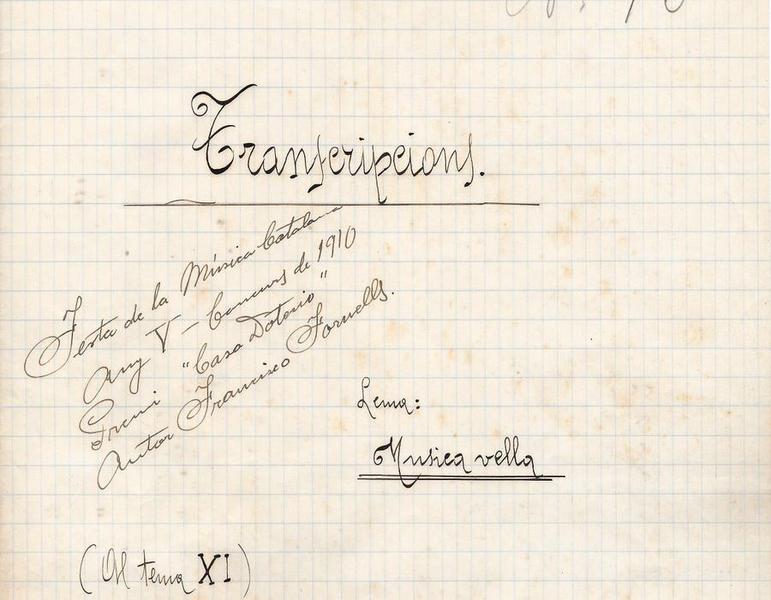 Transcripcions.
Festa de la Música Catalana
Any V - Concurs de 1910
Premi "Casa Dotesio"
Autor Francisco Fornells.
Lema:
Musica vella
(Al tema XI)